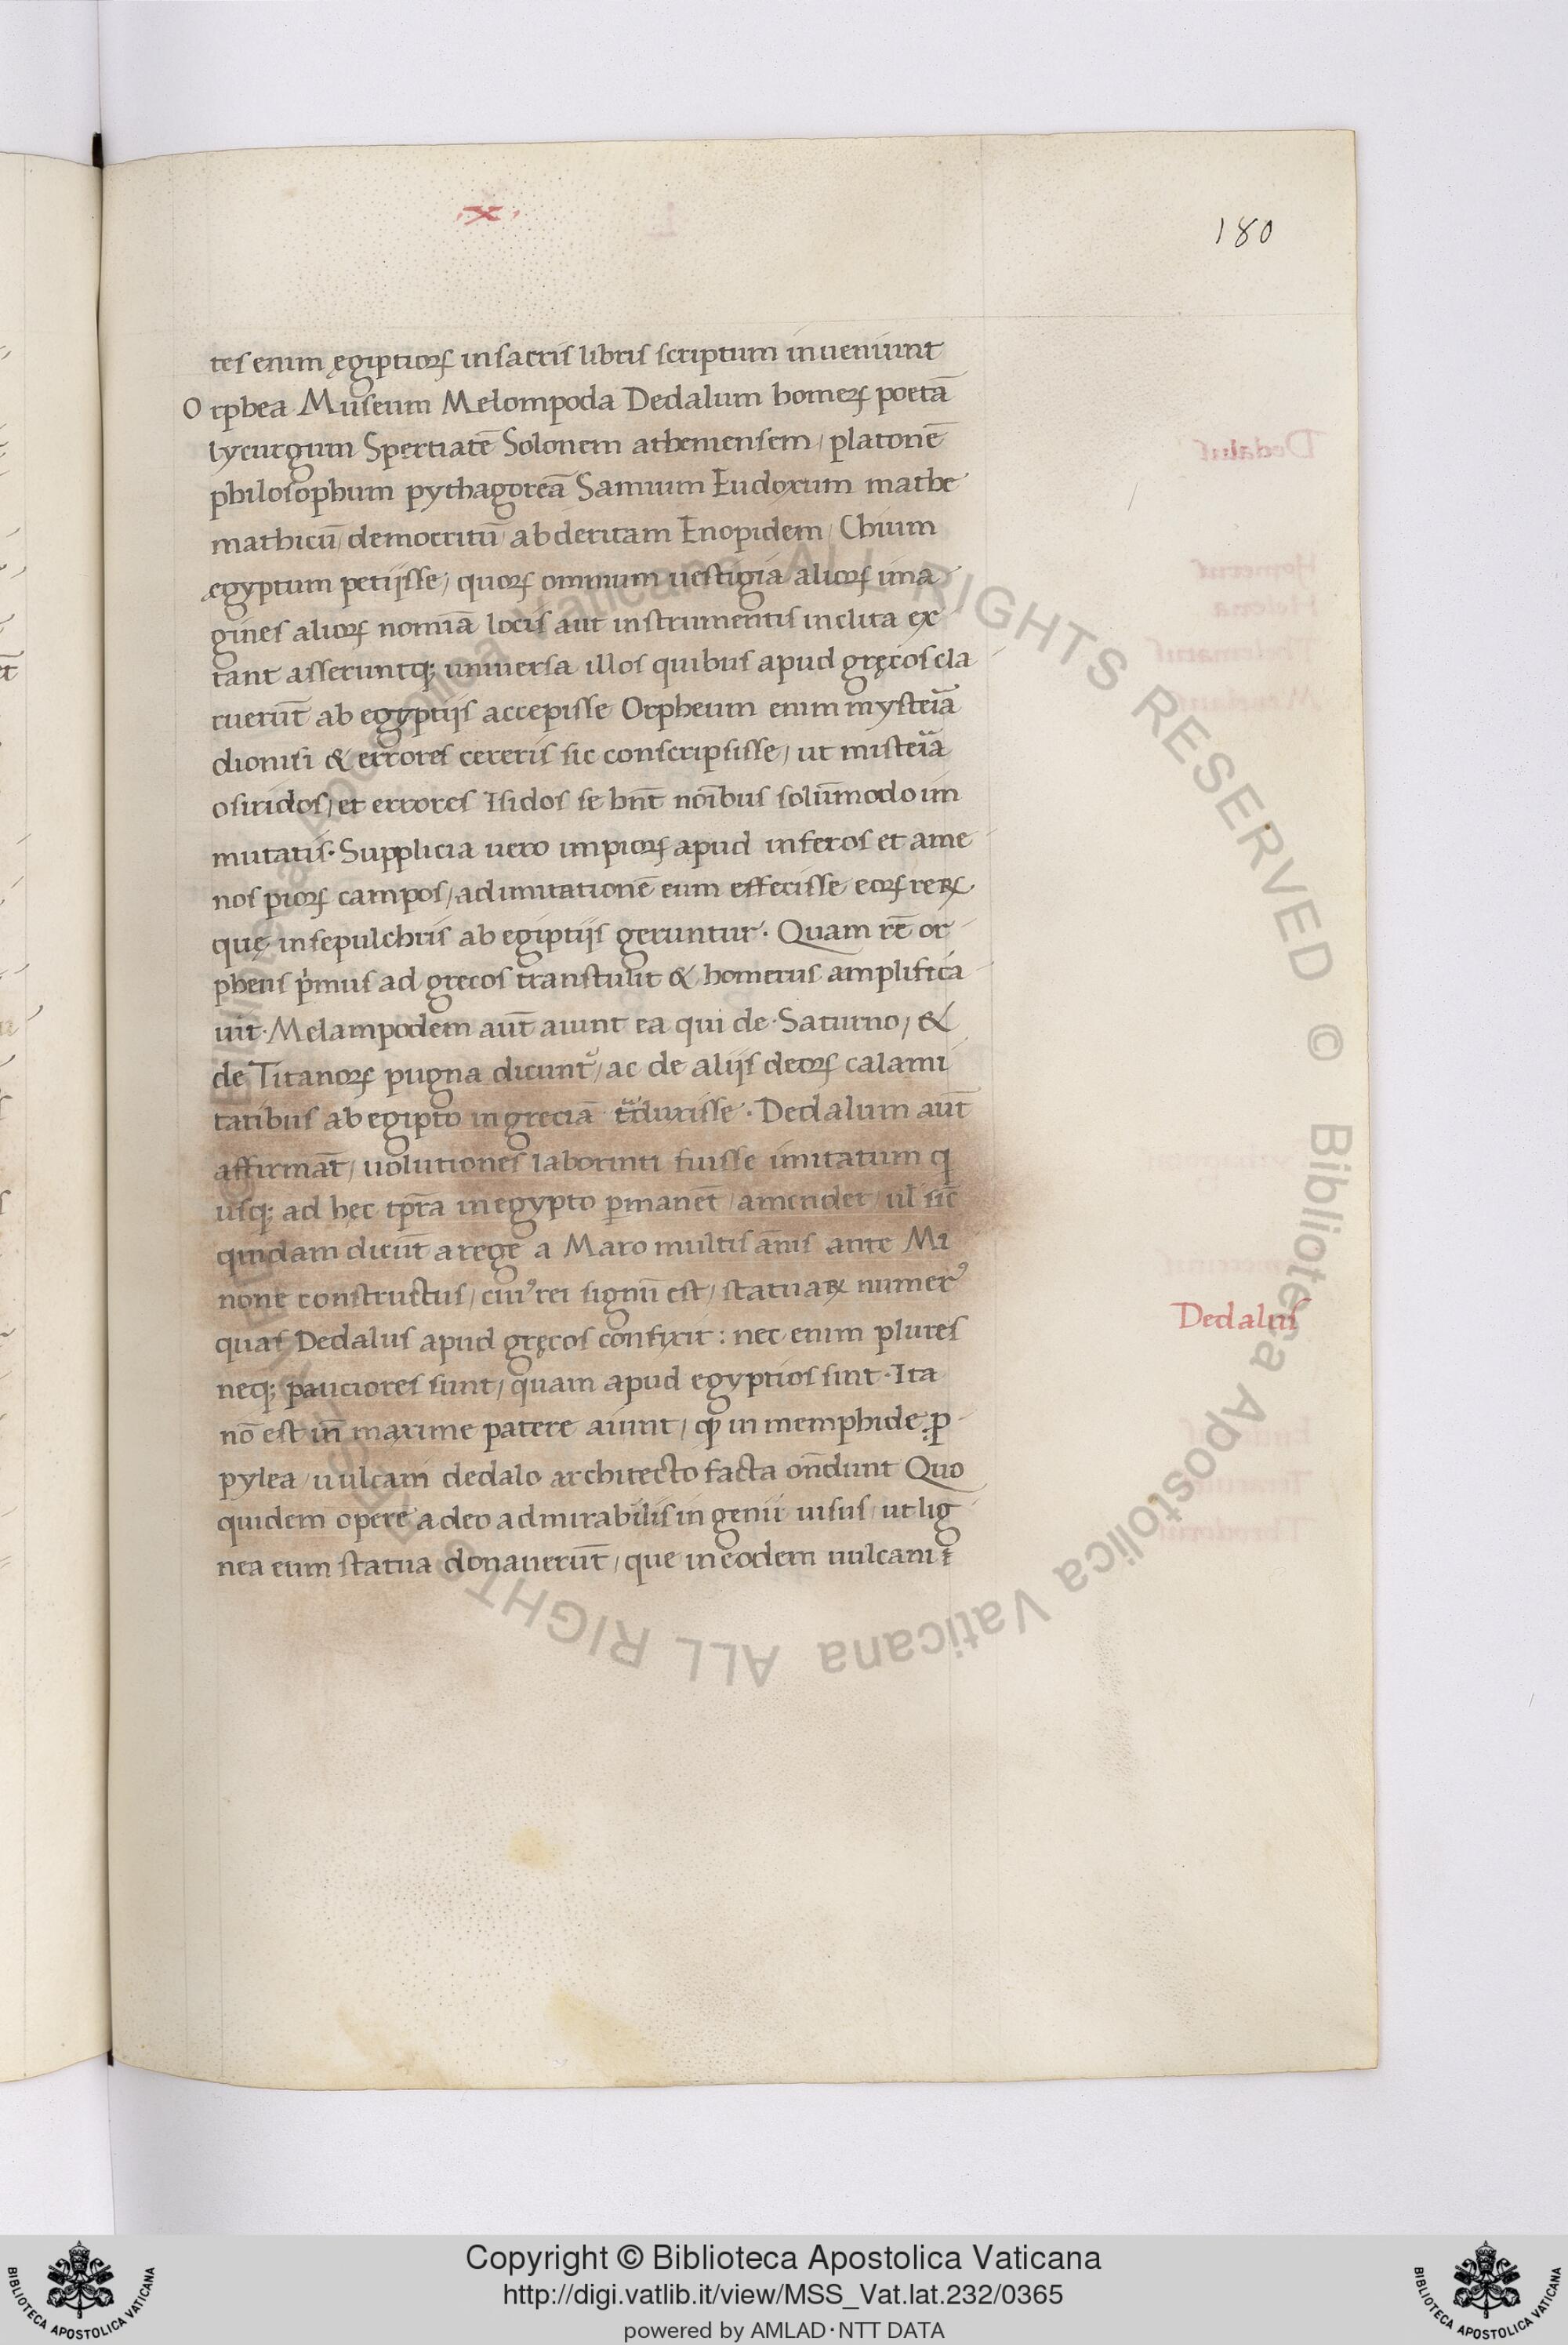 .x.
180
tes enim ęgiptioꝝ in sacris libris scriptum inueniunt
Orphea Museum Melompoda Dedalum homeꝝ poetā
lycurgum Spertiatē Solonem atheniensem / platonē
philosophum pythagoreā Samium Eudoxum mathe
mathicū / democritū / abderitam Enopidem / Chium
ęgyptum petijsse / quoꝝ omnium uestigia alioꝝ ima
gines alioꝝ nomīa locis aut instrumentis inclita ex
tant asseruntq; uniuersa illos quibus apud gręcos cla
ruerūt ab egyptijs accepisse Orpheum enim mysteīa
dionisi & errores cereris sic conscripsisse / ut misteīa
osiridos / et errores Isidos se hn̄t noībus solūmodo im
mutatis · Supplicia uero impioꝝ apud inferos et ame
nos pioꝝ campos / ad imitationē eum effecisse eoꝝ reꝝ
quę in sepulchris ab egiptijs geruntur · Quam rē or
pheus p̍mus ad grecos transtulit & homerus amplifica
uit · Melampodem aut̄ aiunt ea qui de Saturno / &
de Titanoꝝ pugna dicunt᷑ / ac de alijs deoꝝ calami
tatibus ab egipto in greciā t̄duxisse · Dedalum aut̄
affirmāt / uolutiones laborinti fuisse imitatum q
usq; ad hęc tp̄ra in egypto ꝑmanet̄ / amendet / ul̄ sic̄
quidam dicūt a rege a Maro multis ānis ante Mi
none constructus / cuiꝰ rei signū est / statuaꝝ numerꝰ
quas Dedalus apud gręcos confixit : nec enim plures
neq; pauciores sunt / quam apud egyptios sint · Ita
nō est in̄ maxime patere aiunt / qꝫ in memphide ꝓ
pylea / uulcani dedalo architecto facta on̄dunt Quo
quidem opere adeo admirabilis ingenii uisus / ut lig
nea eum statua donauerūt / que in eodem uulcani t
Dedalus
Copyright © Biblioteca Apostolica Vaticana
http://digi.vatlib.it/view/MSS_Vat.lat.232/0365
powered by AMLAD·NTT DATA
BIBLIOTECA APOSTOLICA VATICANA
BIBLIOTECA APOSTOLICA VATICANA
© Biblioteca Apostolica Vaticana ALL RIGHTS RESERVED © Biblioteca Apostolica Vaticana ALL RIGHTS RESERVED